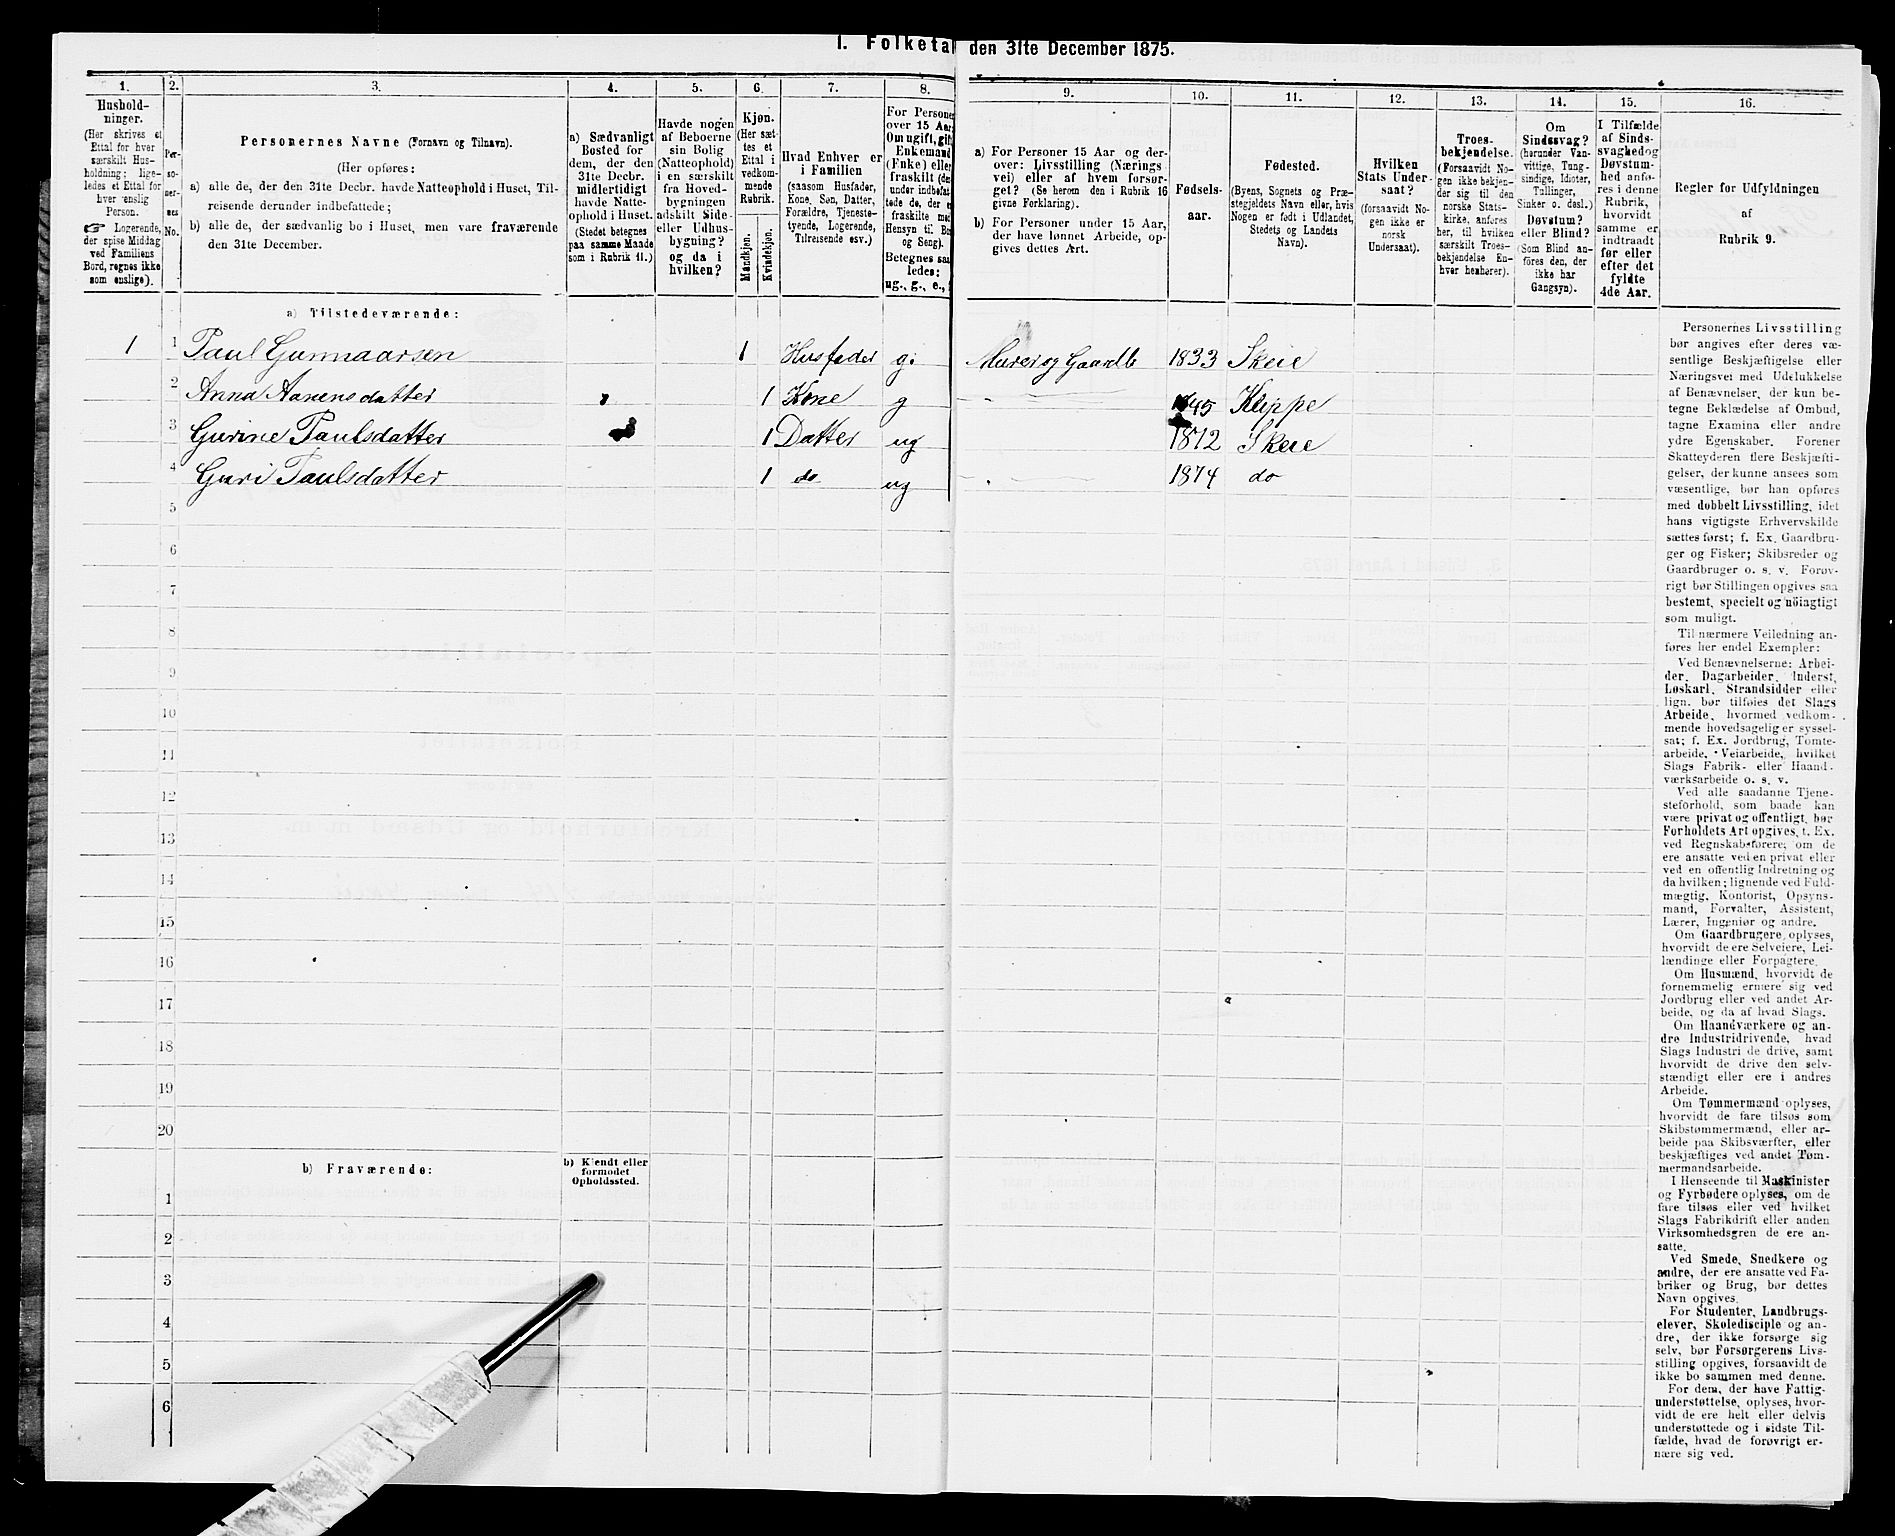 1. Folketal den 31te December 1875.
1.
Hushold-
ninger.
(Her skrives et
Ettal for hver
særskilt Hus-
holdning; lige-
ledes et Ettal for
hver enslig
Person.
☞ Logerende,
der spise Middag
ved Familiens
Bord, regnes ikke
som enslige).
2.
Per-
so-
ner-
nes
No.
3.
Personernes Navne (Fornavn og Tilnavn).
(Her opføres:
a) alle de, der den 31te Decbr. havde Natteophold i Huset, Til-
reisende derunder indbefattede;
b) alle de, der sædvanlig bo i Huset, men vare fraværende
den 31te December.
4.
a) Sædvanligt
Bosted for
dem, der den
31te Decbr.
midlertidigt
havde Natte-
ophold i Huset.
(Stedet betegnes
paa samme Maade
som i Rubrik 11.)
5.
Havde nogen
af Beboerne
sin Bolig
(Natteophold)
i en særskilt
fra Hoved-
bygningen
adskilt Side-
eller Udhus-
bygning?
og da i
hvilken?
6.
Kjøn.
(Her sæt-
tes et
Ettal i
vedkom-
mende
Rubrik.
Mandkjøn.
Kvindekjøn.
7.
Hvad Enhver er
i Familien
(saasom Husfader,
Kone, Søn, Datter,
Forældre, Tjeneste-
tyende, Logerende,
Tilreisende osv.)
8.
For Personer
over 15 Aar,
Om ugift, gift,
Enkemand
(Enke) eller
fraskilt (der-
under indbefat-
tede de, der ere
fraskilte med
Hensyn til Bord
og Seng).
Betegnes saa-
ledes:
ug., g., e.,
9.
a) For Personer 15 Aar og der-
over: Livsstilling (Nærings-
vei) eller af hvem forsør-
get? (Se herom den i Rubrik 16
givne Forklaring).
b) For Personer under 15 Aar,
der have lønnet Arbeide, op-
gives dettes Art.
10.
Fødsels-
aar.
11.
Fødested.
(Byens, Sognets og Præ-
stegjeldets Navn eller, hvis
Nogen er født i Udlandet,
Stedets og Landets
Navn).
12.
Hvilken
Stats Under-
saat?
(forsaavidt No-
gen ikke er
norsk
Undersaat).
13.
Troes-
bekjendelse.
(Forsaavidt No-
gen ikke bekjen-
der sig til den
norske Stats-
kirke, anføres
her, til hvilken
særskilt Troes-
bekjendelse En-
hver henhører).
14.
Om
Sindssvag?
(herunder Van-
vittige, Tung-
sindige, Idioter,
Tullinger,
Sinker o. desl.)
Døvstum?
eller Blind?
(Som Blind an-
føres den, der
ikke har
Gangsyn).
15.
I Tilfælde
af Sinds-
svaghed og
Døvstum-
hed anfø-
res i denne
Rubrik,
hvorvidt
samme er
indtraadt
før eller
efter det
fyldte
4de Aar.
16.
Regler før Udfyldningen
af
Rubrik 9.
a) Tilstedeværende:
1 1 Paul Gunnaarsen 1 Husfader g. Murer og Gaardb 1833 Skeie
2 Anna Aanensdatter 1 Kone g 1845 Kleppe
3 Gurine Paulsdatter 1 Datter ug 1872 Skeie
4 Guri Paulsdatter 1 do ug 1874 do
5
6
7
8
9
10
11
12
13
14
15
16
17
18
19
20
b) Fraværende:
b) Kjendt eller
formodet
Opholdssted.
1
2
3
4
5
6
Personernes Livsstilling
bør angives efter deres væ-
sentlige Beskjæftigelse eller
Næringsvei med Udelukkelse
af Benævnelser, der kun be-
tegne Beklædelse af Ombud,
tagne Examina eller andre
ydre Egenskaber. Forener
Skatteyderen flere Beskjæfti-
gelser, der kunne ansees som
væsentlige, bør han opføres
med dobbelt Livsstilling, idet
hans vigtigste Erhvervskilde
sættes først; f. Ex. Gaardbru-
ger og Fisker; Skibsreder og
Gaardbruger o. s. v. Forøv-
rigt bør Stillingen opgives saa
bestemt, specielt og nöiagtigt
som muligt.
Til nærmere Veiledning an-
føres her endel Exempler:
Ved Benævnelserne: Arbei-
der, Dagarbeider, Inderst,
Løskarl, Strandsidder eller
lign. bør tilføies det Slags
Arbeide, hvormed vedkom-
mende hovedsagelig er syssel-
sat; f. Ex. Jordbrug, Tomte-
arbeide, Veiarbeide, hvilket
Slags Fabrik- eller Haand-
værksarbeide o. s. v.
Ved alle saadanne Tjene-
steforhold, som baade kan
være privat og offentligt, bør
Forholdets Art opgives, t. Ex.
ved Regnskabsførere; om de
ere ansatte ved en privat eller
ved en offentlig Indretning og
da hvilken; lignende ved Fuld-
mægtig, Kontorist, Opsyns-
mand, Forvalter, Assistent,
Lærer, Ingeniør og andre.
Om Gaardbrugere oplyses,
hvorvidt de ere Selveiere, Lei-
lændinge eller Forpagtere.
Om Husmænd, hvorvidt de
fornemmelig ernære sig ved
Jordbrug eller ved andet Ar-
beide, og da af hvad Slags.
Om Haandværkere og an-
dre Industridrivende, hvad
Slags Industri de drive, samt
hvorvidt de drive den selv-
stændigt eller ere i andres
Arbeide.
Om Tømmermænd oplyses,
hvorvidt de fare tilsøs som
Skibstømmermænd, eller ar-
beide paa Skibsværfter, eller
beskjæftiges ved andet Tøm-
mermandsarbeide.
I Henseende til Maskinister
og Fyrbødere oplyses, om de
fare tilsøs eller ved hvilket
Slags Fabrikdrift eller anden
Virksomhedsgren de ere an-
satte.
Ved Smede, Snedkere og
andre, der ere ansatte ved Fa-
briker og Brug, bør dettes
Navn opgives.
For Studenter, Landbrugs-
elever, Skoledisciple og an-
dre, der ikke forsørge sig
selv, bør Forsørgerens Livs-
stilling opgives, forsaavidt de
ikke bo sammen med denne.
For dem, der have Fattig-
understøttelse, oplyses, hvor-
vidt de ere helt eller delvis
understøttede og i sidste Til-
fælde, hvad de forøvrigt er-
nære sig ved.